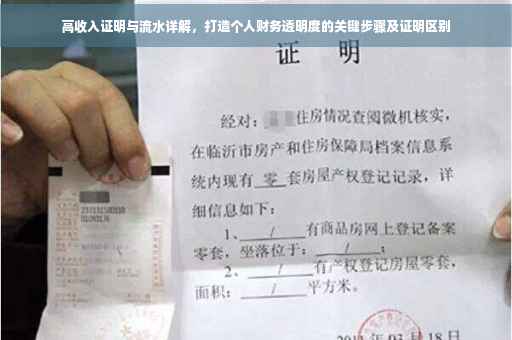 高收入证明与流水详解，打造个人财务透明度的关键步骤及证明区别
证 明
经对：住房情况查阅微机核实，
在临沂市房产和住房保障局档案信息系
统内现有 零 套房屋产权登记记录，详
细信息如下：
1、 / 有商品房网上登记备案
零套，坐落位于： / ；
2、 / 有产权登记房屋零套，
面积： / 平方米。